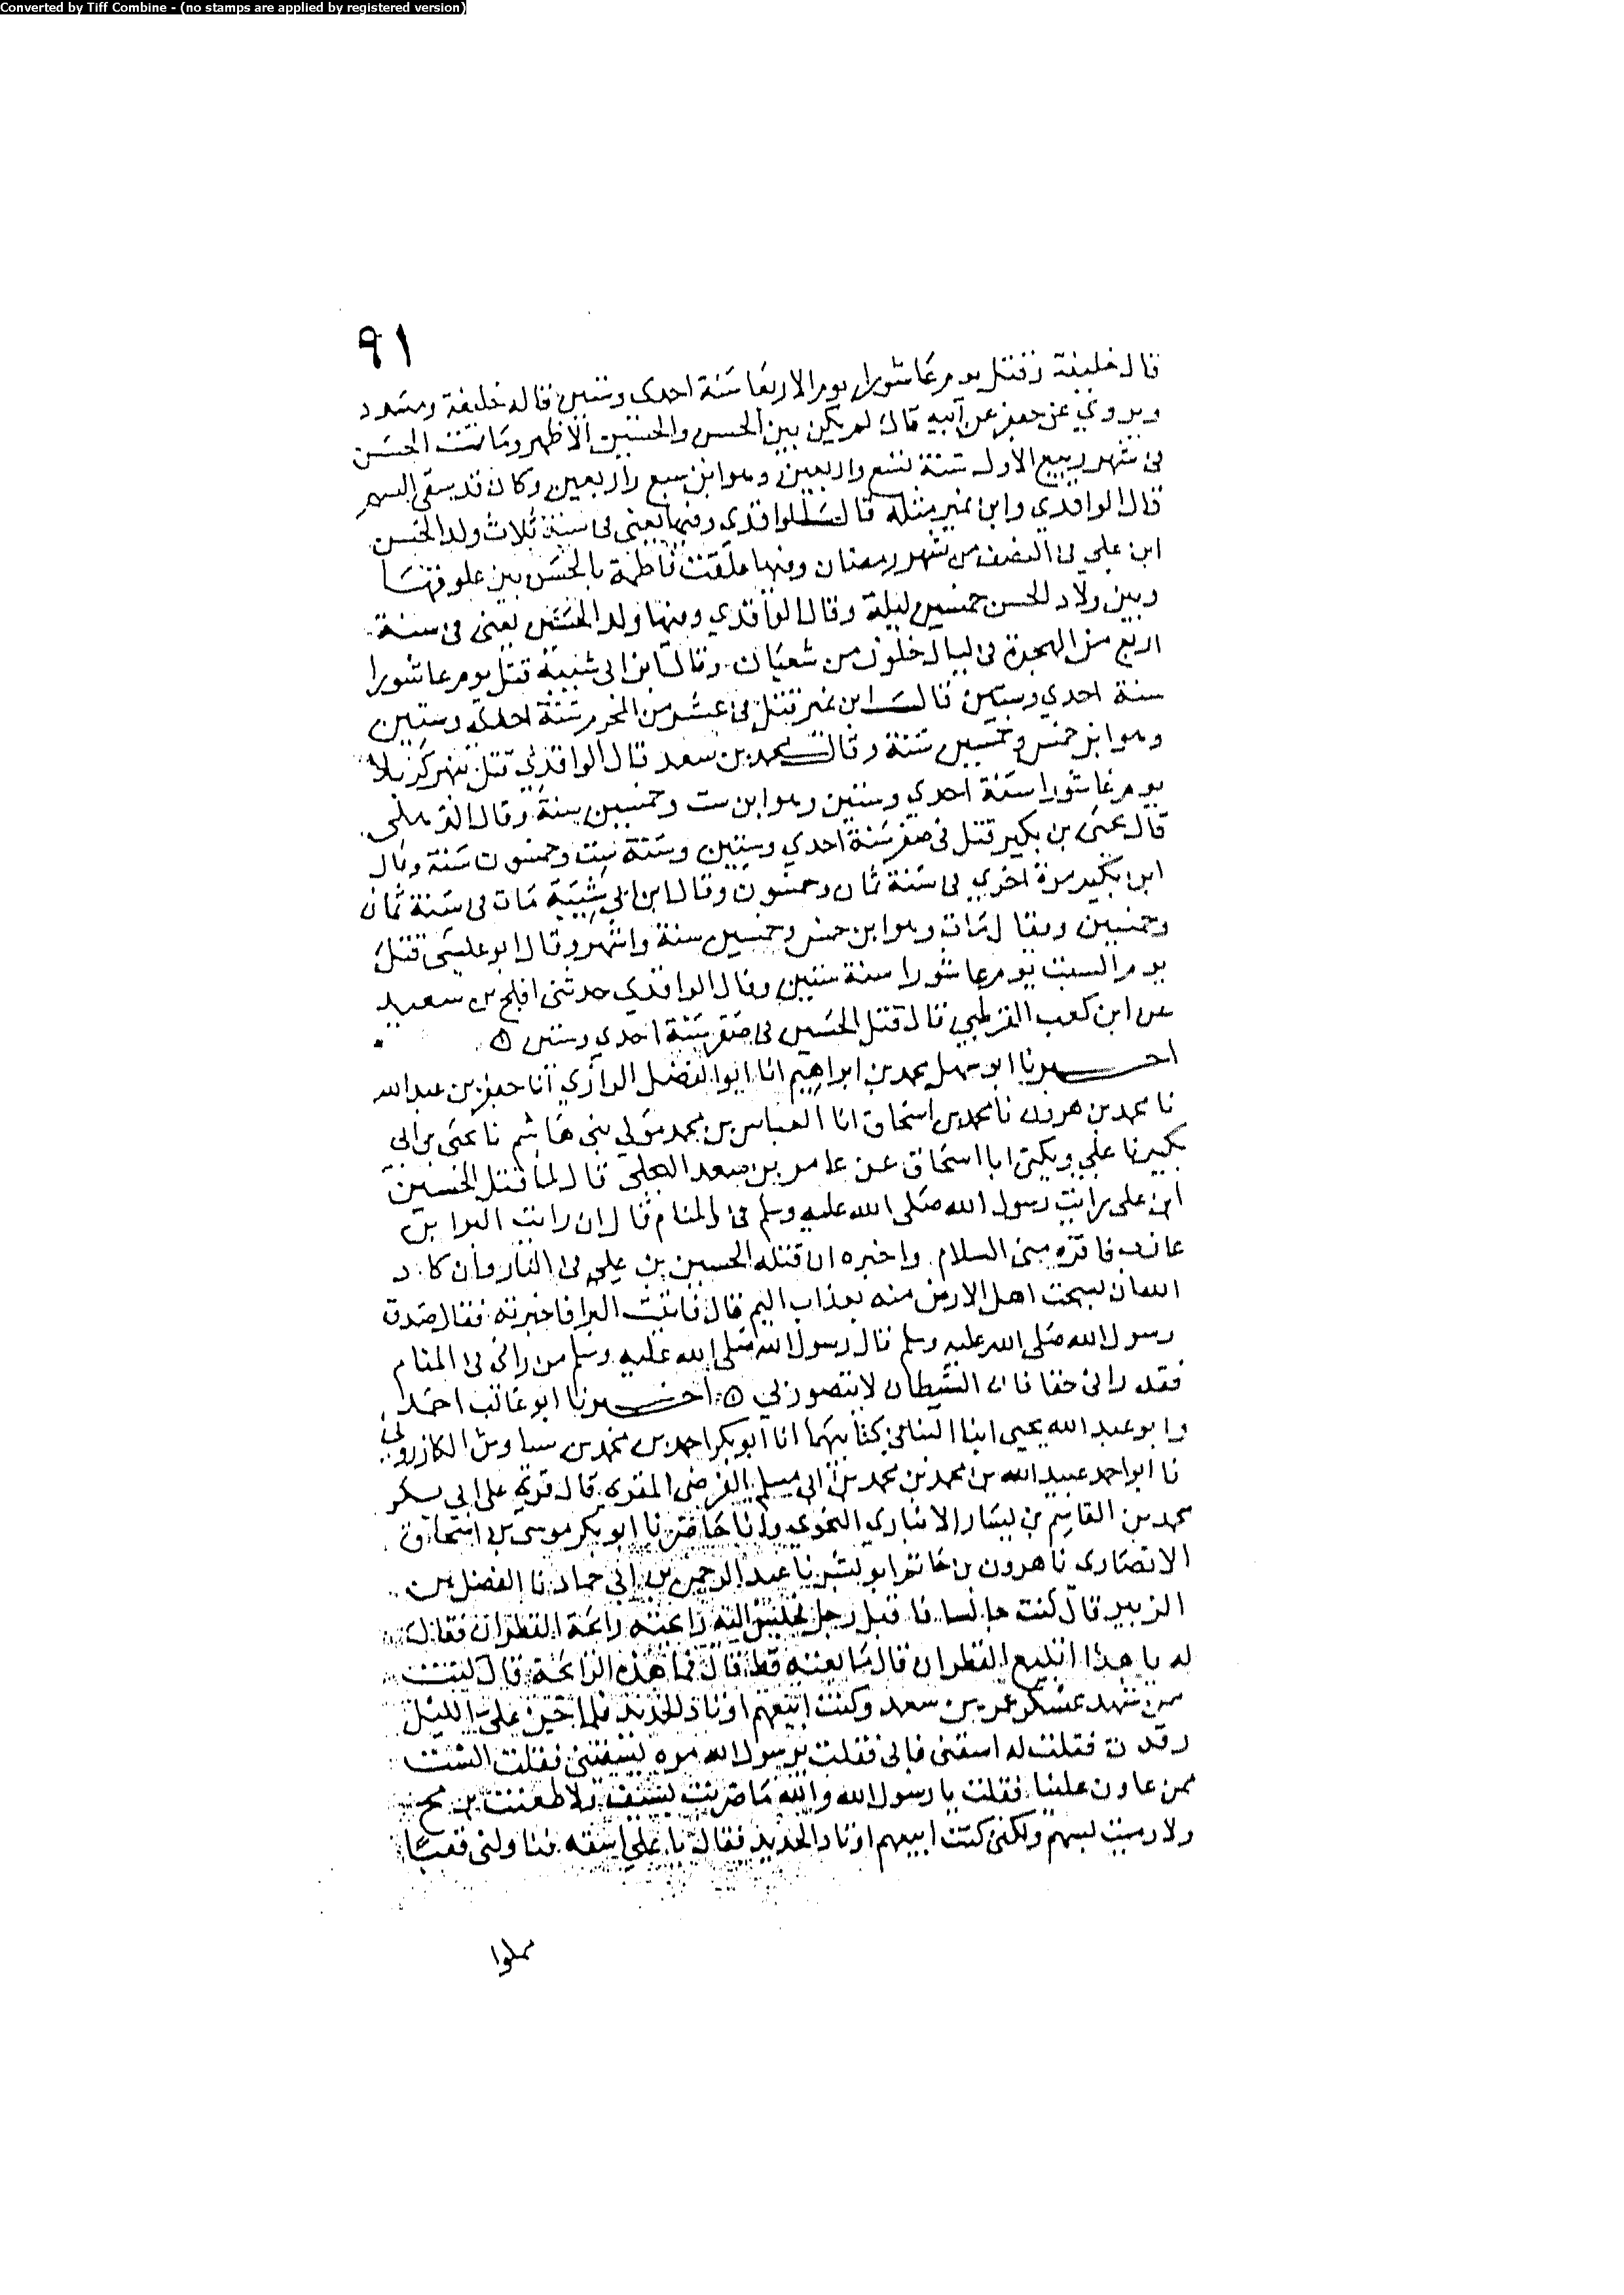 Converted by Tiff Combine - (no stamps are applied by registered version)
٩١
قال خليفة وقتل يوم عاشورا يوم الاربعا سنة احدى وستين قاله خليفة ومسدد
ويروي عن جعفر عن ابيه قال لم يكن بين الحسن والحسين الا طهر ومات الحسن
في شهر ربيع الاول سنة تسع واربعين وهو ابن سبع واربعين وكان قد سقي السم
قال الواقدي وابن نمير مثله قال الواقدي وفيها يعني في سنة ثلاث ولد الحسن
ابن علي في النصف من شهر رمضان وفيها علقت فاطمة بالحسين بين علوقها
وبين ولاد الحسن خمسين ليلة وقال الواقدي وفيها ولد الحسين يعني في سنة
اربع من الهجرة في ليال خلون من شعبان وقال ابن ابي شيبة قتل يوم عاشورا
سنة احدي وستين قال ابن نمير قتل في عشر من المحرم سنة احدى وستين
وهو ابن خمس وخمسين سنة وقال محمد بن سعد قال الواقدي قتل بنهر كربلا
يوم عاشورا سنة احدي وستين وهو ابن ست وخمسين سنة وقال الذهلي
قال يحيى بن بكير قتل في صفر سنة احدي وستين وسنة ست وخمسون سنة وقال
ابن بكير مرة اخري في سنة ثمان وخمسون وقال ابن ابي شيبة مات في سنة ثمان
وخمسين ويقال مات وهو ابن خمس وخمسين سنة واشهر وقال ابو عيسى قتل
يوم السبت يوم عاشورا سنة ستين وقال الواقدي حدثني افلح بن سعيد
عن ابن كعب القرظي قال قتل الحسين في صفر سنة احدي وستين
اخبرنا ابو سهل محمد بن ابراهيم انا ابو الفضل الرازي انا جعفر بن عبد الله
نا محمد بن هرون نا محمد بن اسحاق انا العباس بن محمد مولي بني هاشم نا يحيى بن ابي
بكير نا علي ويكنى ابا اسحاق عن عامر بن سعد البجلي قال لما قتل الحسين
ابن علي رايت رسول الله صلى الله عليه وسلم في المنام قال ان رايت البرا بن
عازب فاقره مني السلام واخبره ان قتلة الحسين بن علي في النار وان كاد
الله ان يسحت اهل الارض منه بعذاب اليم قال فاتيت البرا فاخبرته فقال صدق
رسول الله صلى الله عليه وسلم قال رسول الله صلى الله عليه وسلم من راني في المنام
فقد راني حقا فان الشيطان لا يتصور بي اخبرنا ابو غالب احمد
وابو عبد الله يحيى ابنا البنا في كتابيهما انا ابو بكر احمد بن محمد بن سياوش الكازروني
نا ابو احمد عبيد الله بن محمد بن محمد بن ابي مسلم الفرضي المقري قال قري على ابي بكر
محمد بن القاسم بن بشار الانباري النحوي وانا حاضر نا ابو بكر موسى بن اسحاق
الانصاري نا هرون بن حاتم ابو بشر نا عبد الرحمن بن ابي حماد نا الفضل بن
الزبير قال كنت جالسا فاقبل رجل فجلس اليه رائحته رائحة القطران فقال
له يا هذا اتبيع القطران قال ما بعته قط قال فما هذه الرائحة قال كنت
ممن شهد عسكر عمر بن سعد وكنت ابيعهم اوتاد الحديد فلما جن علي الليل
رقدت فقلت له اسقني فابى فقلت يرسول الله مره يسقني فقلت الست
ممن عاون علينا فقلت يا رسول الله والله ما ضربت بسيف ولا طعنت برمح
ولا رميت بسهم ولكني كنت ابيعهم اوتاد الحديد فقال يا علي اسقه فناولني قعبا
مملوا